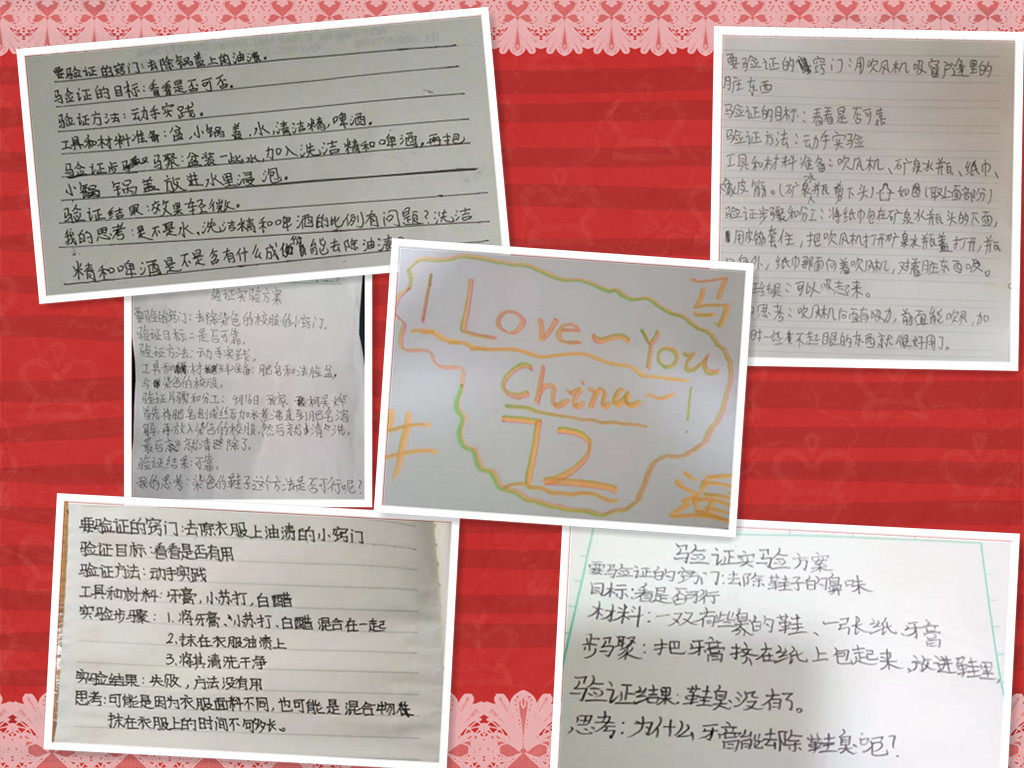 要验证的窍门:去除锅盖上的油渍。
验证的目标:看看是否可否。
验证方法:动手实践。
工具和材料准备:盆,小锅盖,水,清洁精,啤酒。
验证步骤:盆装一些水,加入洗洁精和啤酒,再把
小锅 锅盖放进水里浸泡。
验证结果:效果轻微。
我的思考:是不是水、洗洁精和啤酒的比例有问题?洗洁
精和啤酒是不是含有什么成份能去除油渍
要验证的窍门:用吹风机吸窗户缝里的
脏东西
验证的目标:看看是否可靠
验证方法:动手实验
工具和材料准备:吹风机、矿泉水瓶、纸巾、
橡皮筋。(矿泉瓶剪下头)如图(取上面部分)
验证步骤和分工:将纸巾包在矿泉水瓶头的下面,
用皮筋套住,把吹风机打开矿泉水瓶盖打开,瓶
外,纸巾那面向着吹风机,对着脏东西吸。
结果:可以吸起来。
思考:吹风机后面有吸力,前面能吹风,加
一些看不起眼的东西就很好用了。
验证实验方案
要验证的窍门:去除染色的校服的小窍门。
验证目标:是否可靠。
验证方法:动手实践。
工具和材料准备:肥皂和洗脸盆。
染色的校服。
验证步骤和分工:9月16日
解,再放入染色的校服,然后
最后
验证结果:可靠。
我的思考:染色的鞋子这个方法是否可行呢?
I Love~You
China~!
72
马
要验证的窍门:去除衣服上油渍的小窍门
验证目标:看看是否有用
验证方法:动手实践
工具和材料:牙膏,小苏打,白醋
实验步骤:1.将牙膏、小苏打、白醋混合在一起
2.抹在衣服油渍上
3.将其清洗干净
实验结果:失败,方法没有用
思考:可能是因为衣服面料不同,也可能是混合物
抹在衣服上的时间不够长。
验证实验方案
要验证的窍门:去除鞋子的臭味
目标:看是否可行
材料:一双有些臭的鞋、一张纸、牙膏
步骤:把牙膏挤在纸上包起来,放进鞋里,
验证结果:鞋臭没有了。
思考:为什么牙膏能去除鞋臭呢?